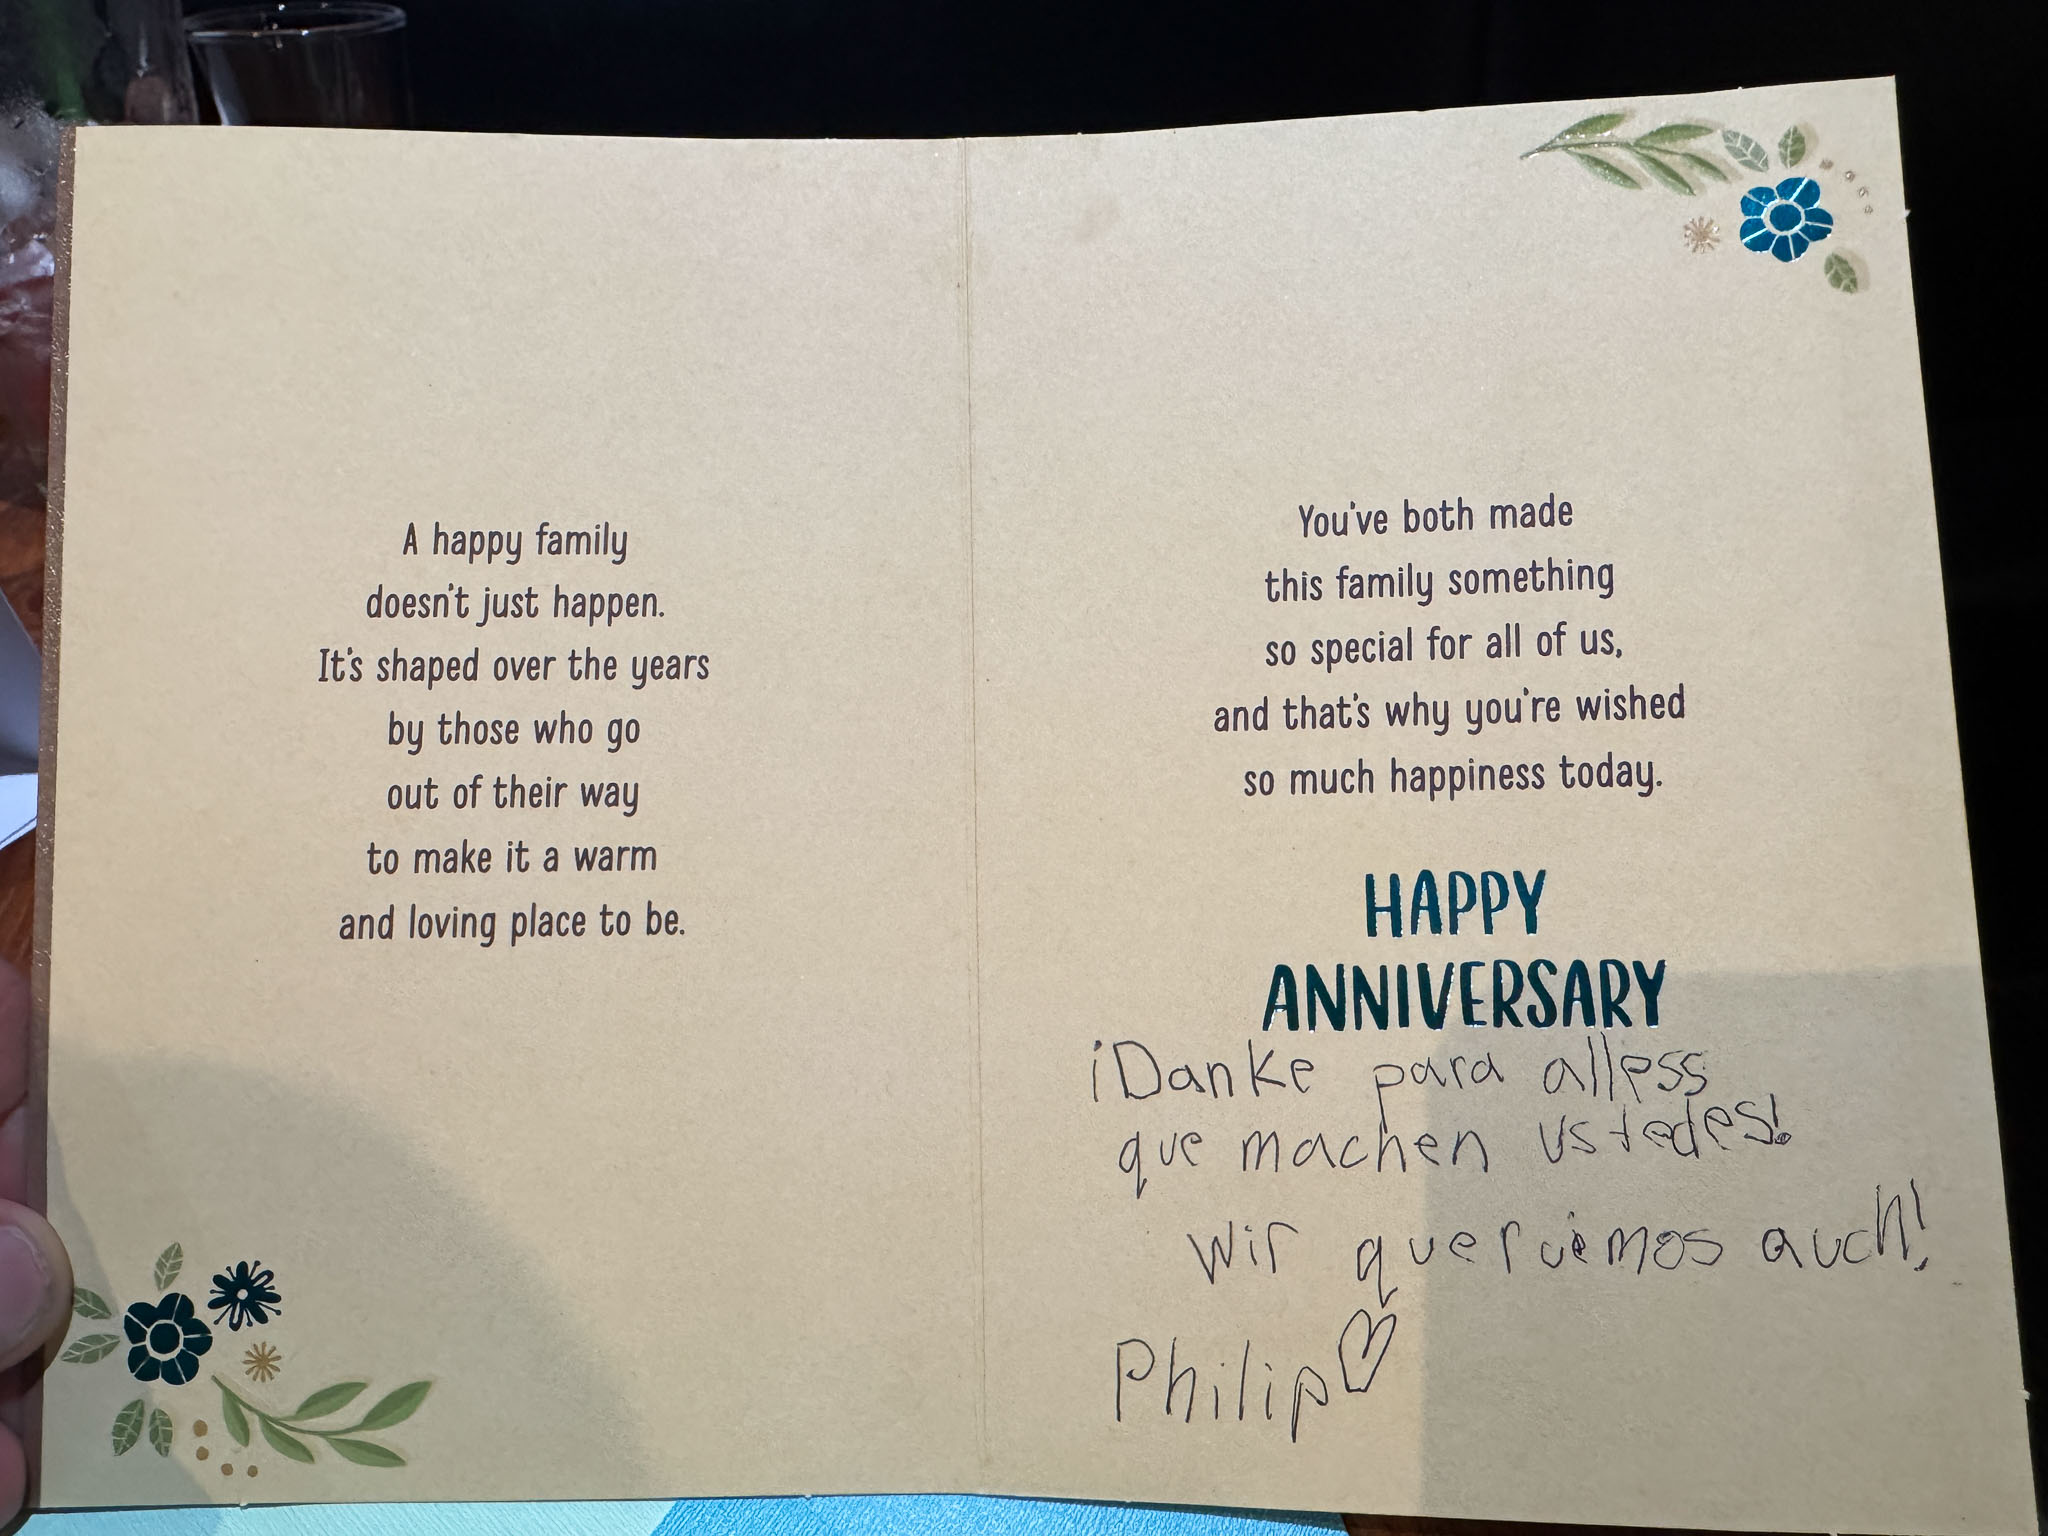 A happy family
doesn't just happen.
It's shaped over the years
by those who go
out of their way
to make it a warm
and loving place to be.
You've both made
this family something
so special for all of us,
and that's why you're wished
so much happiness today.
HAPPY
ANNIVERSARY
¡Danke para alless
que machen ustedes!
Wir queremos auch!
Philip♡